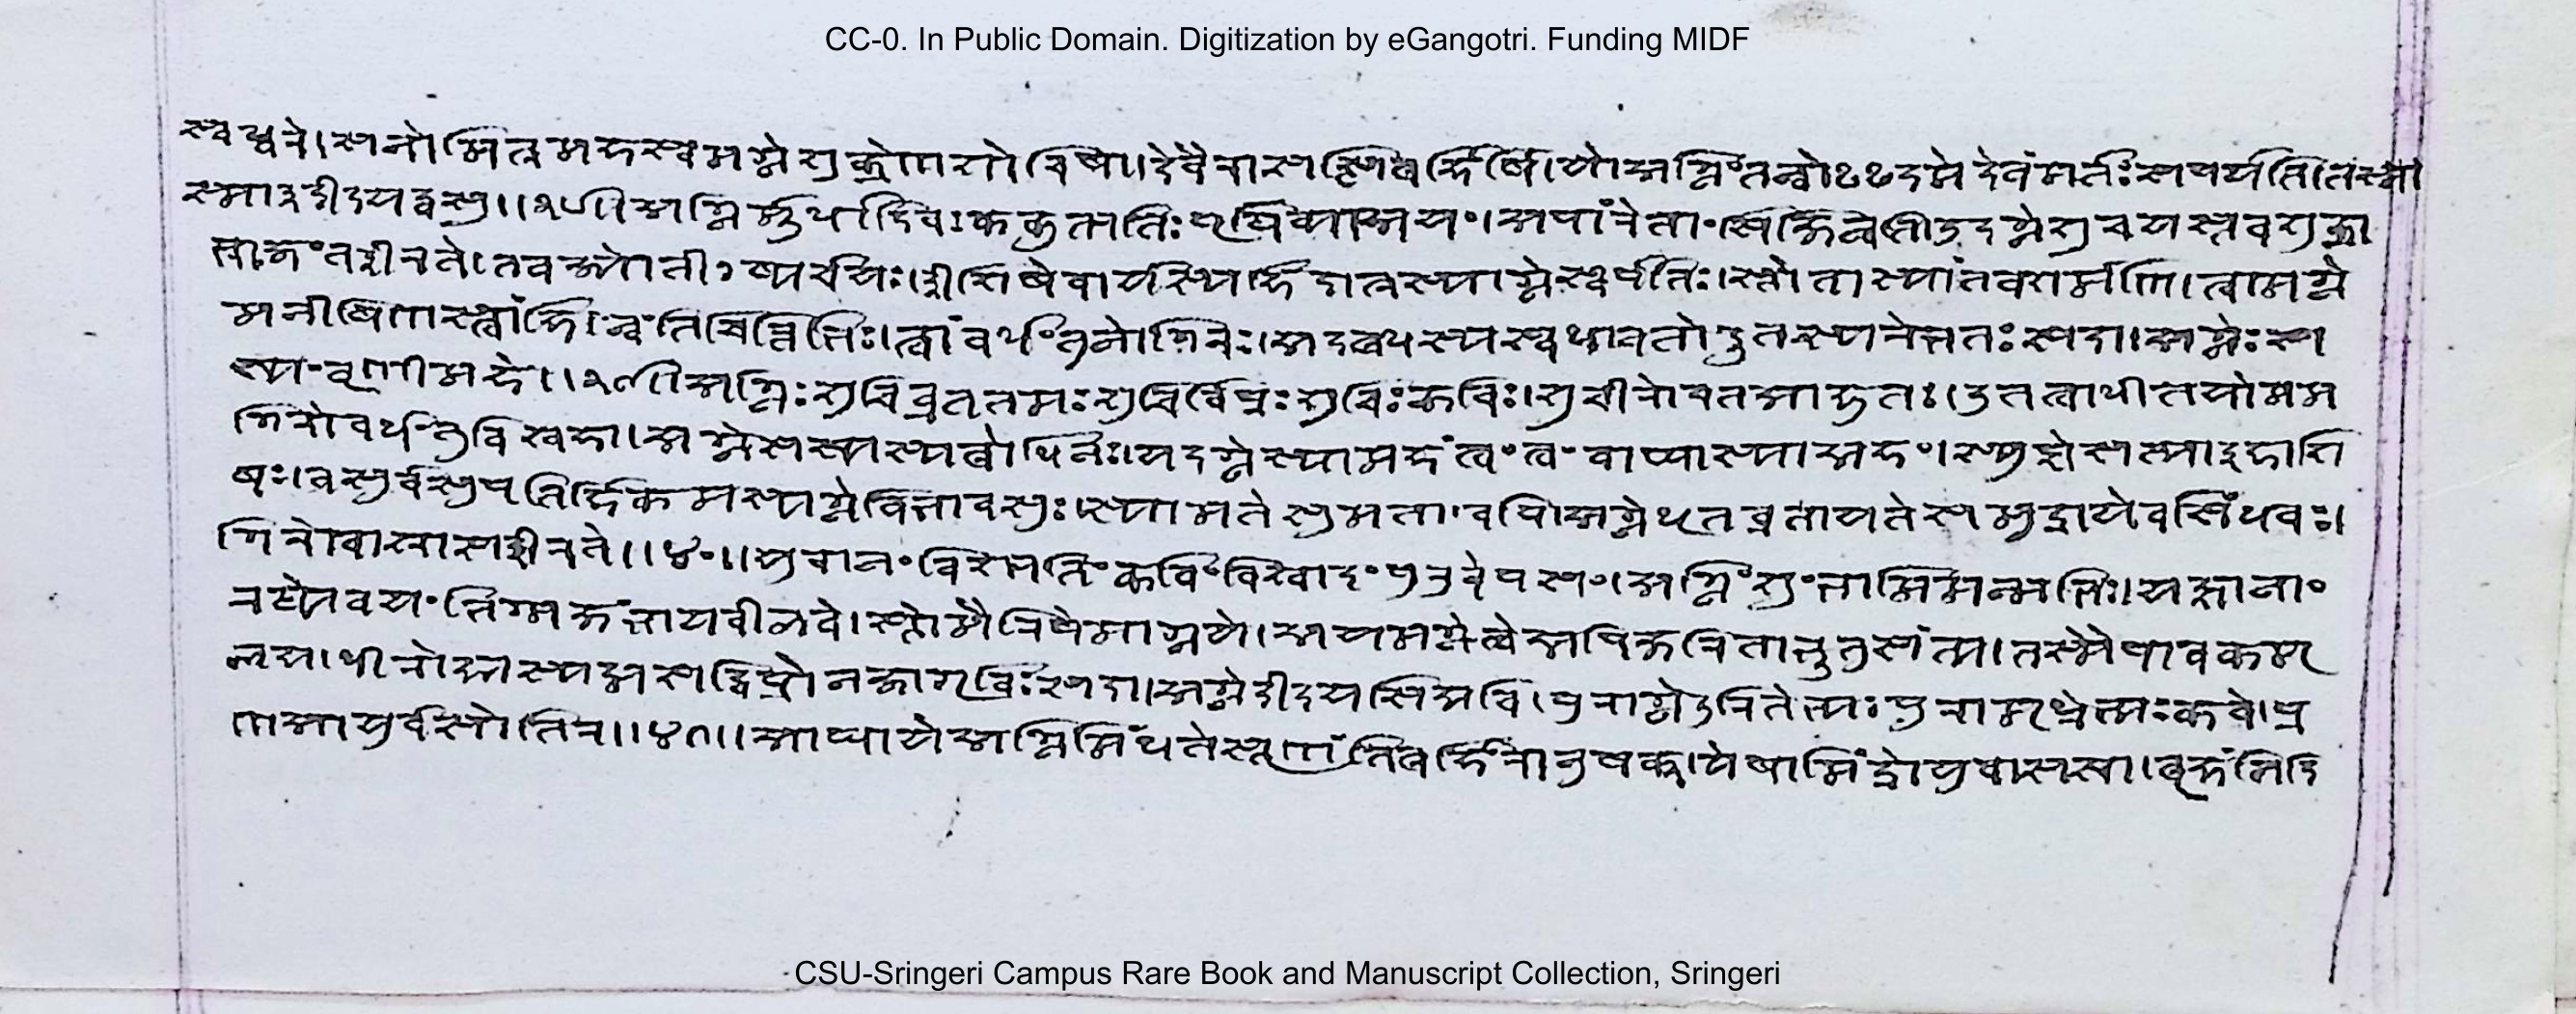 CC-0. In Public Domain. Digitization by eGangotri. Funding MIDF
स्वध्वरे। सनो मित्रमहस्त्वमग्ने शुक्रेण शोचिषा। देवैरा सत्सि बर्हिषि। यो अग्निं तन्वो३ दमे देवं मर्तः सपर्यति। तस्मा
इद्दीदयद्वसु॥ ३८॥ अग्निर्मूर्धा दिवः ककुत्पतिः पृथिव्या अयं। अपां रेतांसि जिन्वति। उदग्ने शुचयस्तव शुक्रा
भ्राजंत ईरते। तव ज्योतींष्यर्चयः। ईशिषे वार्यस्य हि दात्रस्याग्ने स्वर्पतिः। स्तोता स्यां तव शर्मणि। त्वामग्ने
मनीषिणस्त्वां हिन्वंति चित्तिभिः। त्वां वर्धंतु नो गिरः। अदब्धस्य स्वधावतो दूतस्य रेभतः सदा। अग्नेः स
ख्यं वृणीमहे॥ ३९॥ अग्निः शुचिव्रततमः शुचिर्विप्रः शुचिः कविः। शुची रोचत आहुतः। उत त्वा धीतयो मम
गिरो वर्धंतु विश्वहा। अग्ने सख्यस्य बोधि नः। यदग्ने स्यामहं त्वं त्वं वा घा स्या अहं। स्युष्टे सत्या इहाशि
षः। वसुर्वसुपतिर्हि कमस्यग्ने विभावसुः। स्याम ते सुमतावपि। अग्ने धृतव्रताय ते समुद्रायेव सिंधवः।
गिरो वाश्रास ईरते॥ ४०॥ युवानं विश्पतिं कविं विश्वादं पुरुवेपसं। अग्निं शुंभामि मन्मभिः। यज्ञानां
रथ्ये वयं तिग्मजंभाय वीळवे। स्तोमैरिषेमाग्नये। अयमग्ने त्वे अपि जरिता भूतु संत्य। तस्मै पावक मृ
ळय। धीरो ह्यस्यद्मसद्विप्रो न जागृविः सदा। अग्ने दीदयसि द्यवि। पुराग्ने दुरितेभ्यः पुरा मृध्रेभ्यः कवे। प्र
ण आयुर्वसो तिर॥ ४१॥ आ घा ये अग्निमिंधते स्तृणंति बर्हिरानुषक्। येषामिंद्रो युवा सखा। बृहन्निदि
CSU-Sringeri Campus Rare Book and Manuscript Collection, Sringeri